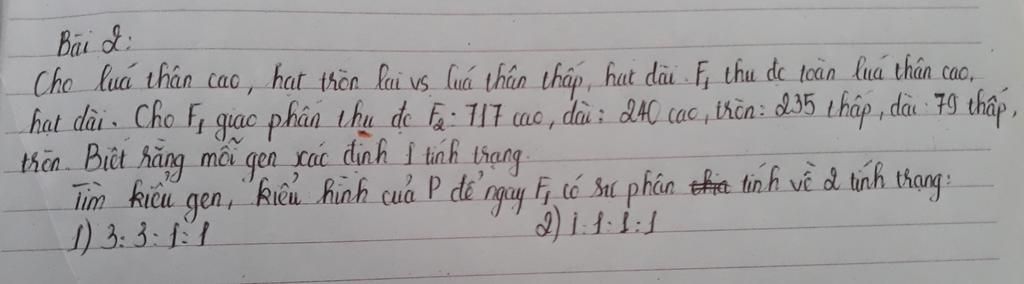 Bài 2:
Cho luá thân cao, hạt tròn lai vs luá thân thấp, hạt dài. F₁ thu đc toàn luá thân cao,
hạt dài. Cho F₁ giao phấn thu đc F₂: 717 cao, dài: 240 cao, tròn: 235 thấp, dài: 79 thấp,
tròn. Biết rằng mỗi gen xác định 1 tính trạng.
Tìm kiểu gen, kiểu hình của P để ngay F₁ có sự phân tính về 2 tính trạng:
1) 3: 3: 1: 1 2) 1: 1: 1: 1